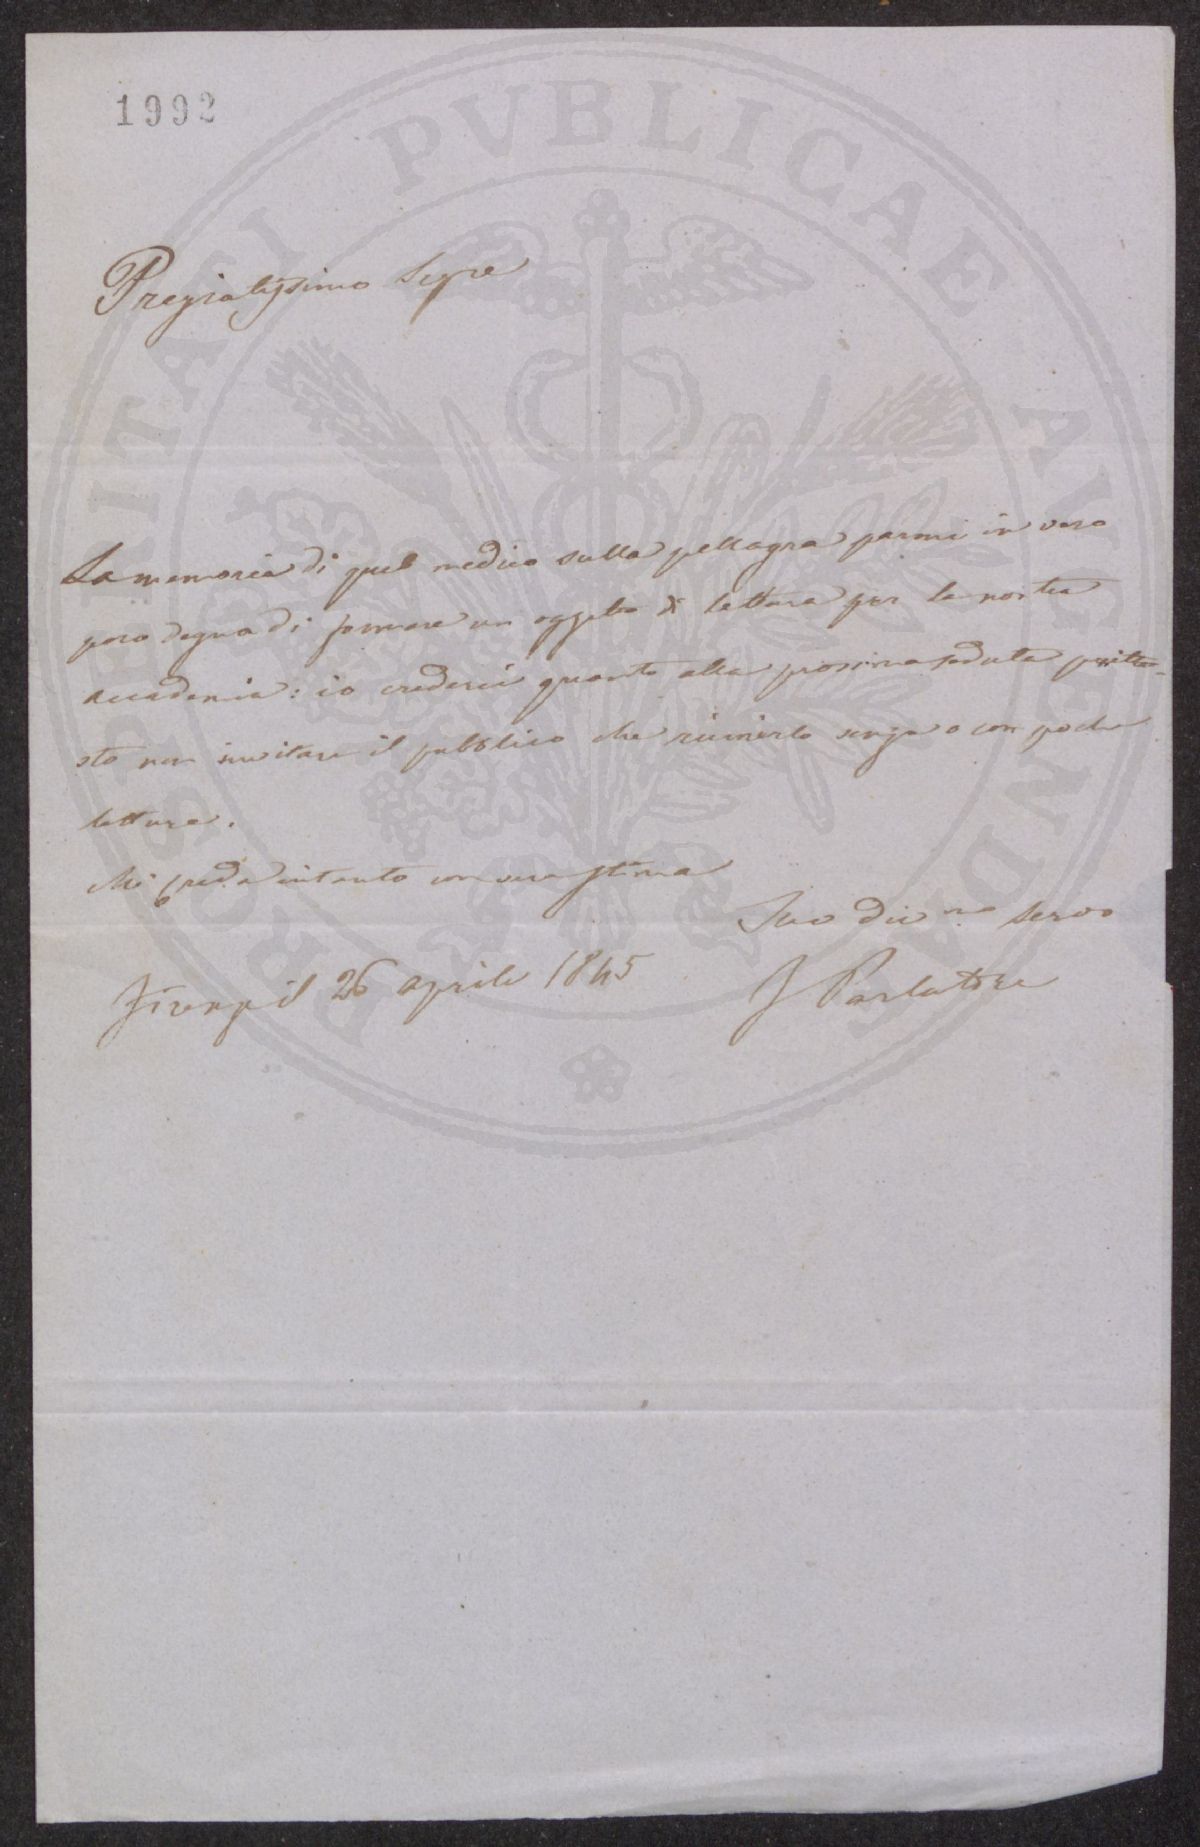 1992
PROSPERITATI PVBLICAE AVGENDAE
Pregiatissimo Sigre
La memoria di quel medico sulla pellagra parmi in vero
poco degna di formare un oggetto di lettura per la nostra
accademia: io crederei quanto alla prossima seduta piutto-
sto non invitare il pubblico che riunirlo senza o con poche
letture.
Mi creda intanto con vera stima
Suo dev mo servo
Firenze il 26 aprile 1845
F Parlatore